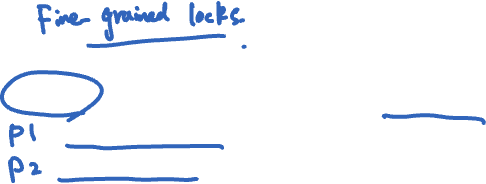 Fine grained locks.
P1
P2